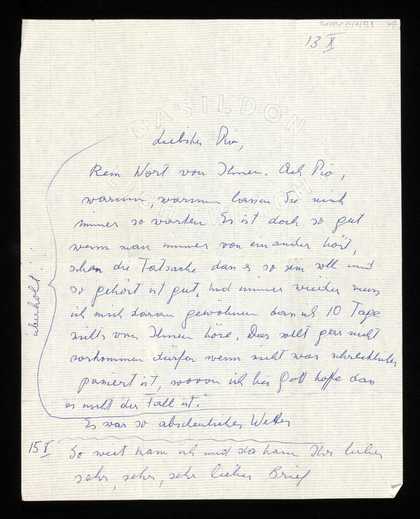 13 X
MARILDON
Liebster Pio,
Kein Wort von Ihnen. Ach Pio,
warum, warum lassen Sie mich
immer so warten. Es ist doch so gut
wenn man immer von einander hört,
schon die Tatsache dass es so sein soll und
so gehört ist gut, und immer wieder muss
ich mich daran gewöhnen dass ich 10 Tage
nichts von Ihnen höre. Das sollt gar nicht
vorkommen dürfen wenn nicht was schreckliches
passiert ist, wovon ich bei Gott hoffe dass
es nicht der Fall ist.
überholt!
Es war so abscheuliches Wetter
15 X So weit kam ich und da kam Ihr lieber
sehr, sehr, sehr lieber Brief